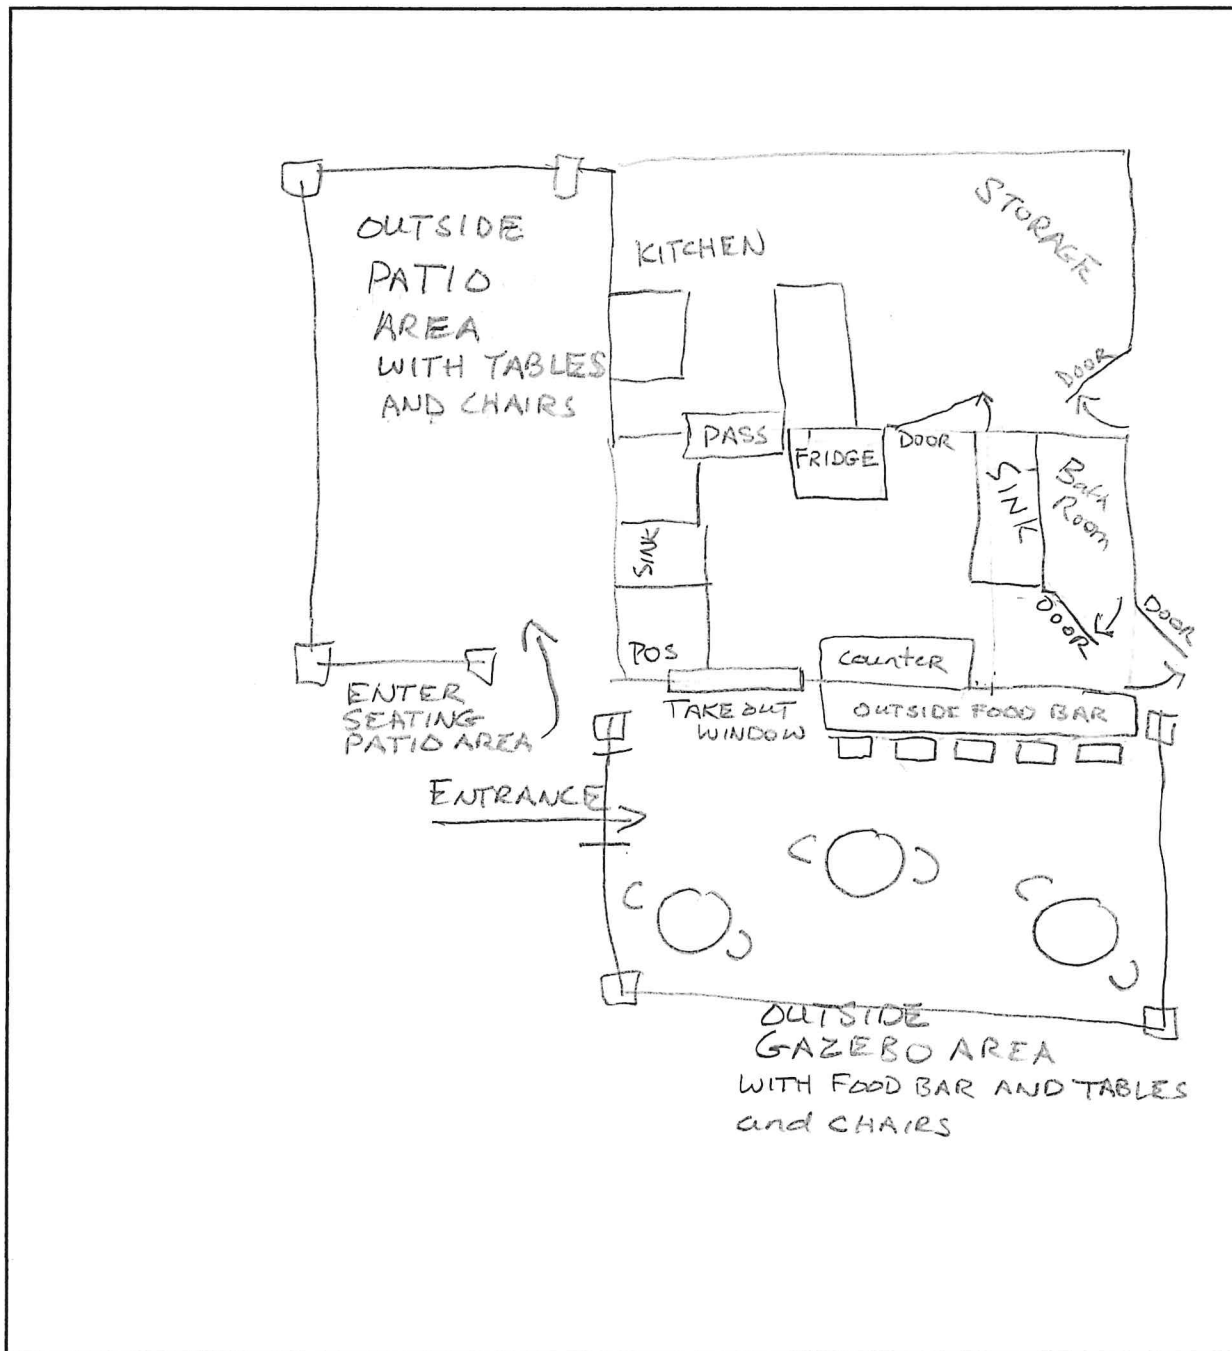 OUTSIDE
PATIO
AREA
WITH TABLES
AND CHAIRS
KITCHEN
STORAGE
DOOR
PASS
FRIDGE
DOOR
SINK
Bath
Room
SINK
DOOR
DOOR
POS
Counter
TAKE OUT
WINDOW
OUTSIDE FOOD BAR
ENTER
SEATING
PATIO AREA
ENTRANCE
OUTSIDE
GAZEBO AREA
WITH FOOD BAR AND TABLES
and CHAIRS